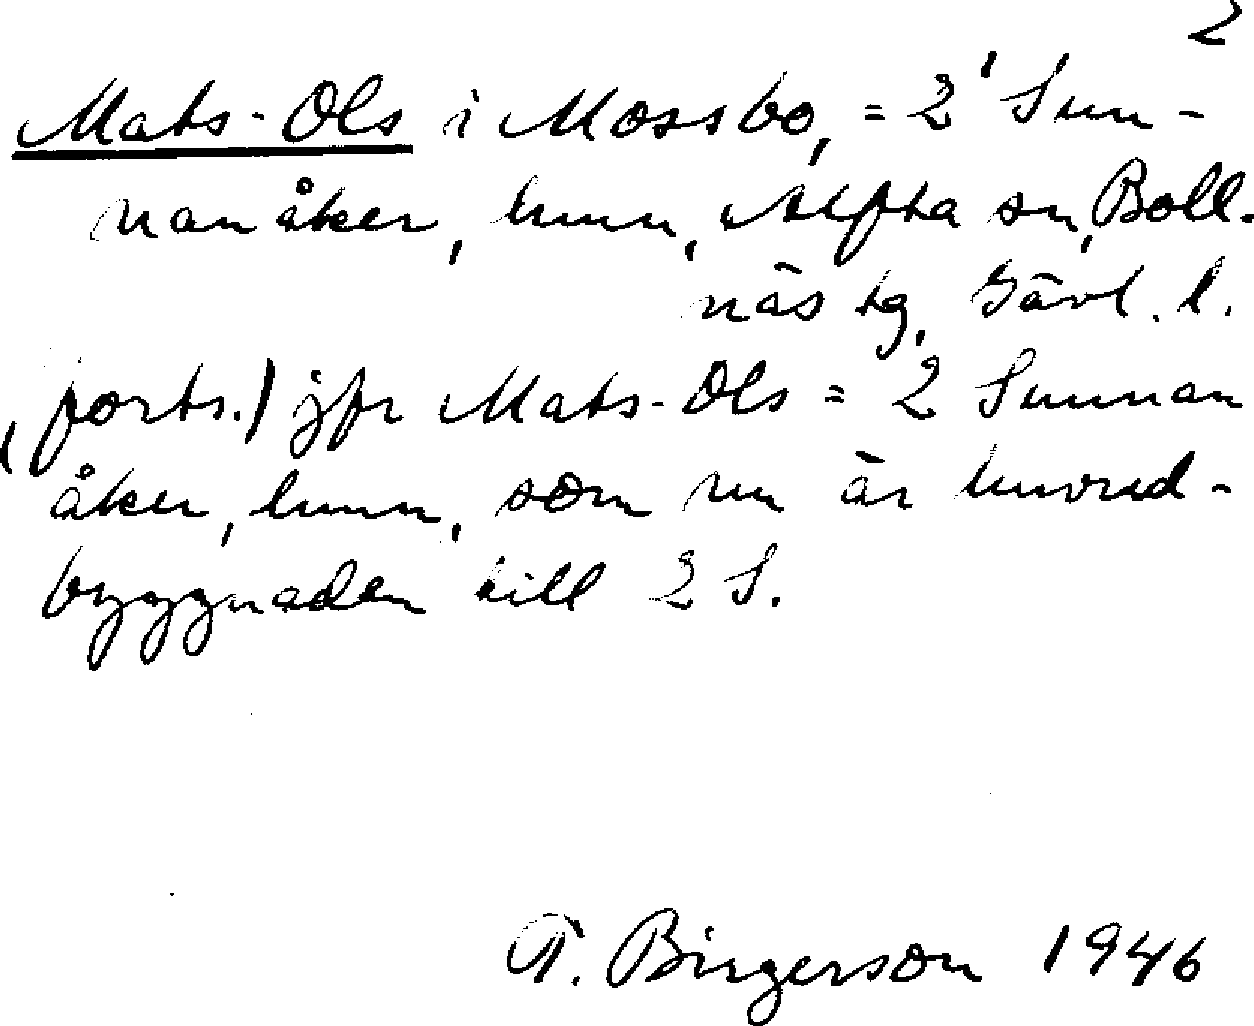 2
Mats-Ols i Mossbo, = 2' Sun-
nanåker, hmn, Alfta sn, Boll-
näs tg, Gävl. l.
(forts.) jfr Mats-Ols = 2 Sunnan
åker, hmn, som nu är huvud-
byggnaden till 2 S.
T. Birgerson 1946